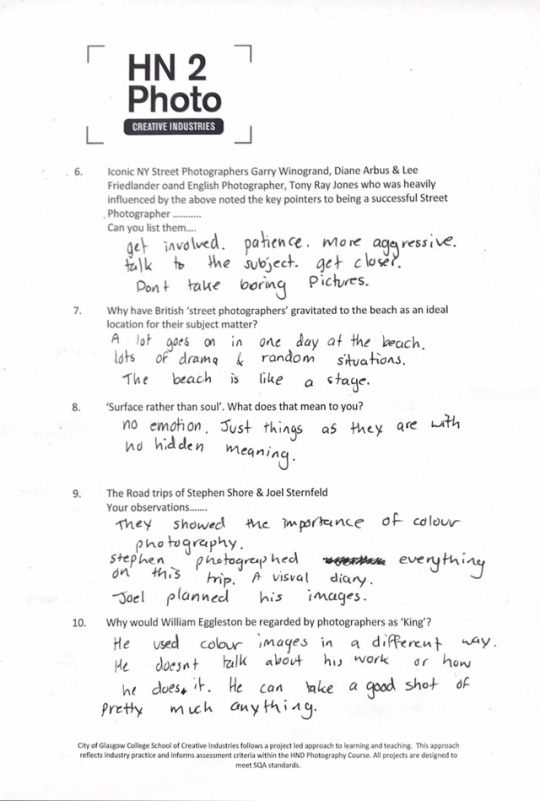 HN 2
Photo
CREATIVE INDUSTRIES
6. Iconic NY Street Photographers Garry Winogrand, Diane Arbus & Lee
Friedlander oand English Photographer, Tony Ray Jones who was heavily
influenced by the above noted the key pointers to being a successful Street
Photographer ...........
Can you list them....
get involved. patience. more aggressive.
talk to the subject. get closer.
Dont take boring Pictures.
7. Why have British 'street photographers' gravitated to the beach as an ideal
location for their subject matter?
A lot goes on in one day at the beach.
lots of drama & random situations.
The beach is like a stage.
8. 'Surface rather than soul'. What does that mean to you?
no emotion. Just things as they are with
no hidden meaning.
9. The Road trips of Stephen Shore & Joel Sternfeld
Your observations.......
They showed the importance of colour
photography.
Stephen photographed everything
on this trip. A visual diary.
Joel planned his images.
10. Why would William Eggleston be regarded by photographers as 'King'?
He used colour images in a different way.
He doesnt talk about his work or how
he does it. He can take a good shot of
pretty much anything.
City of Glasgow College School of Creative Industries follows a project led approach to learning and teaching. This approach
reflects industry practice and informs assessment criteria within the HND Photography Course. All projects are designed to
meet SQA standards.